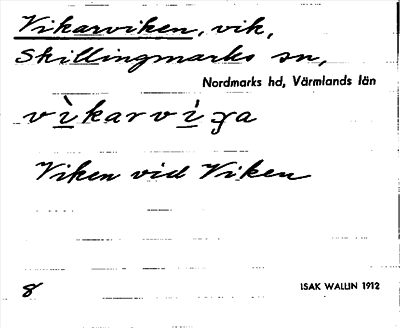 Vikarviken, vik,
Skillingmarks sn,
Nordmarks hd, Värmlands län
vìkarvìʒa
Viken vid Viken
8
ISAK WALLIN 1912